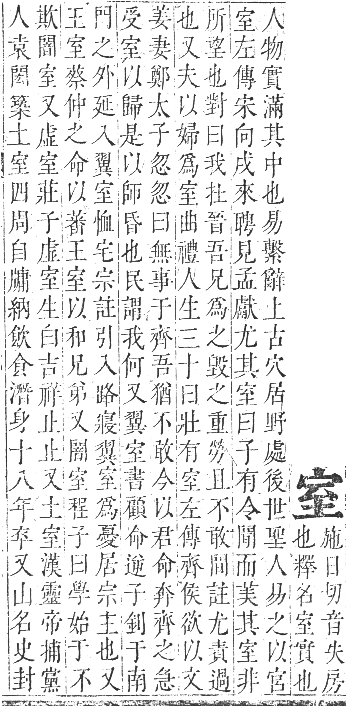 室
施日切音失房
也釋名室實也
人物實滿其中也易繫辭上古穴居野處後世聖人易之以宮
室左傳宋向戌來聘見孟獻尤其室曰子有令聞而美其室非
所望也對曰我在晉吾兄爲之毀之重勞且不敢間註尤責過
也又夫以婦爲室曲禮人生三十曰壯有室左傳齊侯欲以文
姜妻鄭太子忽忽曰無事于齊吾猶不敢今以君命奔齊之急
受室以歸是以師昏也民謂我何又翼室書顧命逆子釗于南
門之外延入翼室恤宅宗註引入路寢翼室爲憂居宗主也又
王室蔡仲之命以蕃王室以和兄弟又闇室程子曰學始于不
欺闇室又虛室莊子虛室生白吉祥止止又土室漢靈帝捕黨
人袁閎築土室四周自牖納飲食潛身十八年卒又山名史封